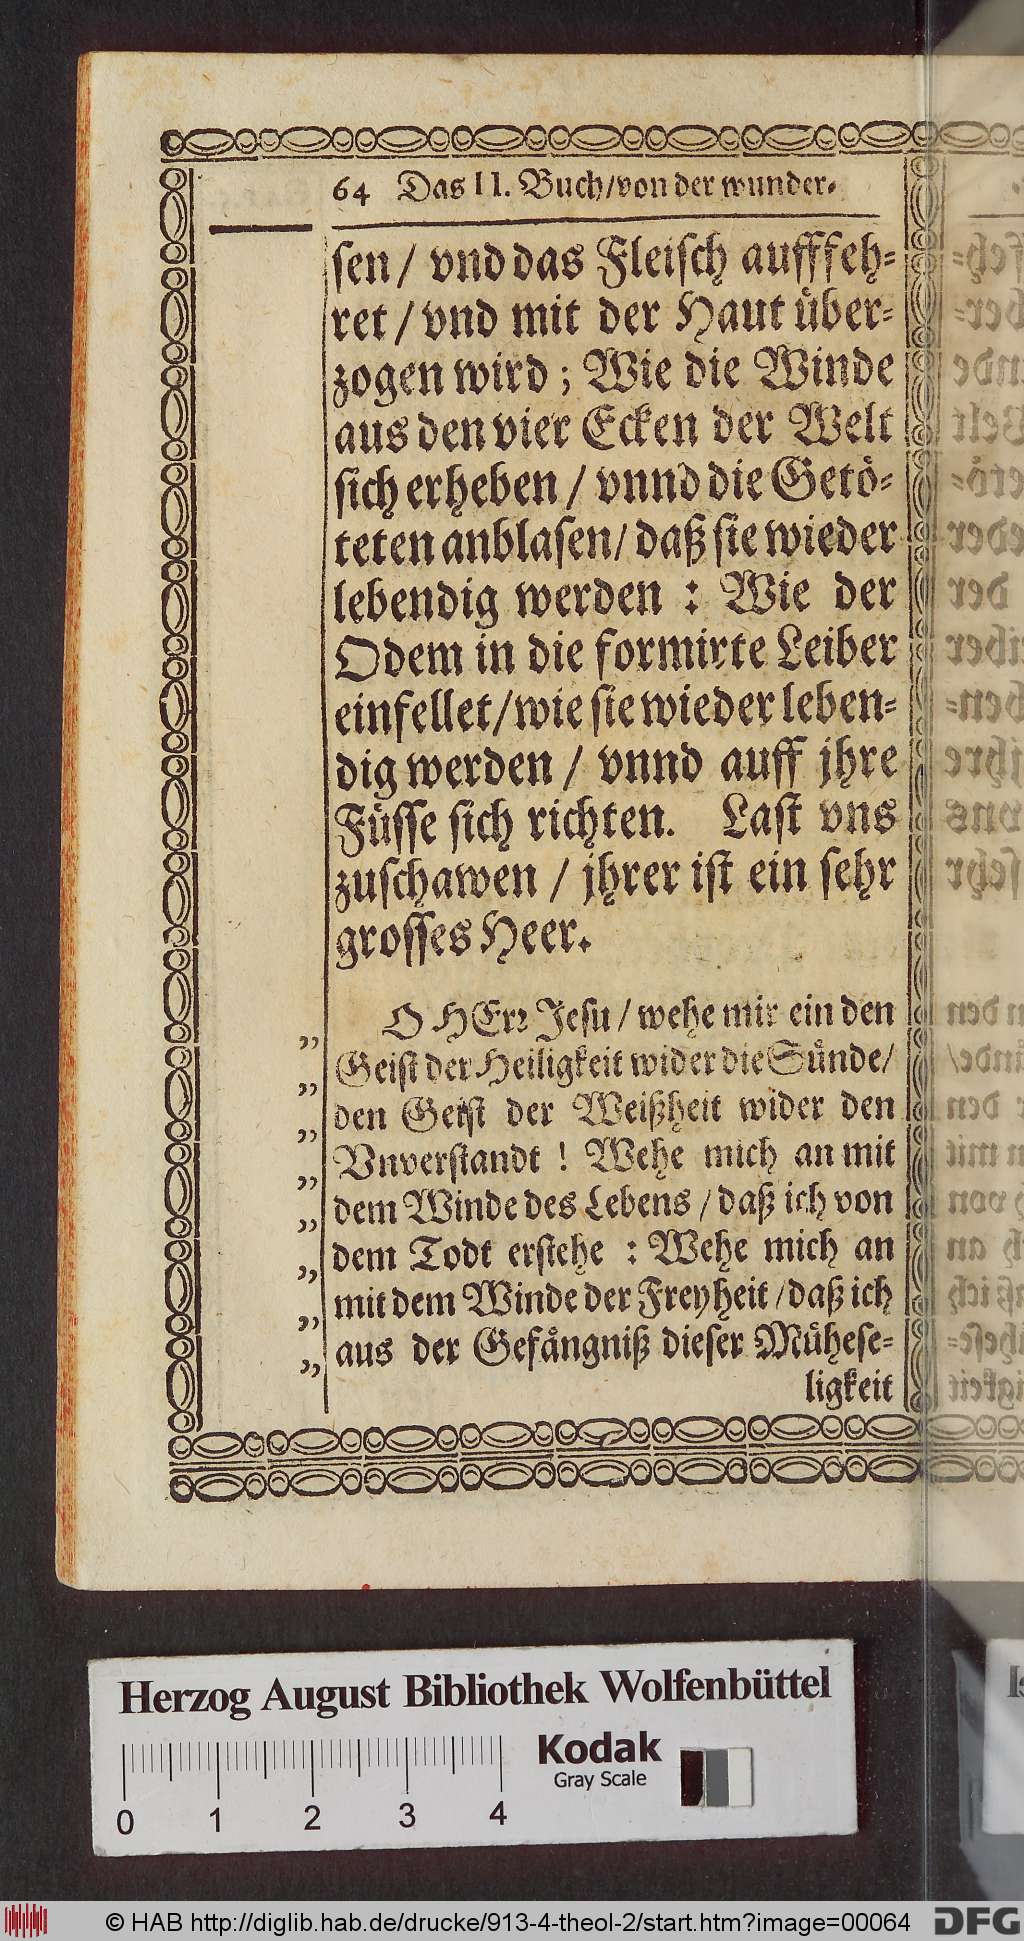 64 Das II. Buch/von der wunder-
sen / vnd das Fleisch aufffeh-
ret / vnd mit der Haut über-
zogen wird ; Wie die Winde
aus den vier Ecken der Welt
sich erheben / vnnd die Getö-
teten anblasen/ daß sie wieder
lebendig werden : Wie der
Odem in die formirte Leiber
einfellet/wie sie wieder leben-
dig werden / vnnd auff jhre
Füsse sich richten. Last vns
zuschawen / jhrer ist ein sehr
grosses Heer.
O HErr Jesu / wehe mir ein den
„ Geist der Heiligkeit wider die Sünde/
„ den Geist der Weißheit wider den
„ Vnverstandt ! Wehe mich an mit
„ dem Winde des Lebens / daß ich von
„ dem Todt erstehe : Wehe mich an
„ mit dem Winde der Freyheit / daß ich
„ aus der Gefängniß dieser Mühese-
„ ligkeit
Herzog August Bibliothek Wolfenbüttel
Kodak
Gray Scale
0 1 2 3 4
© HAB http://diglib.hab.de/drucke/913-4-theol-2/start.htm?image=00064
DFG